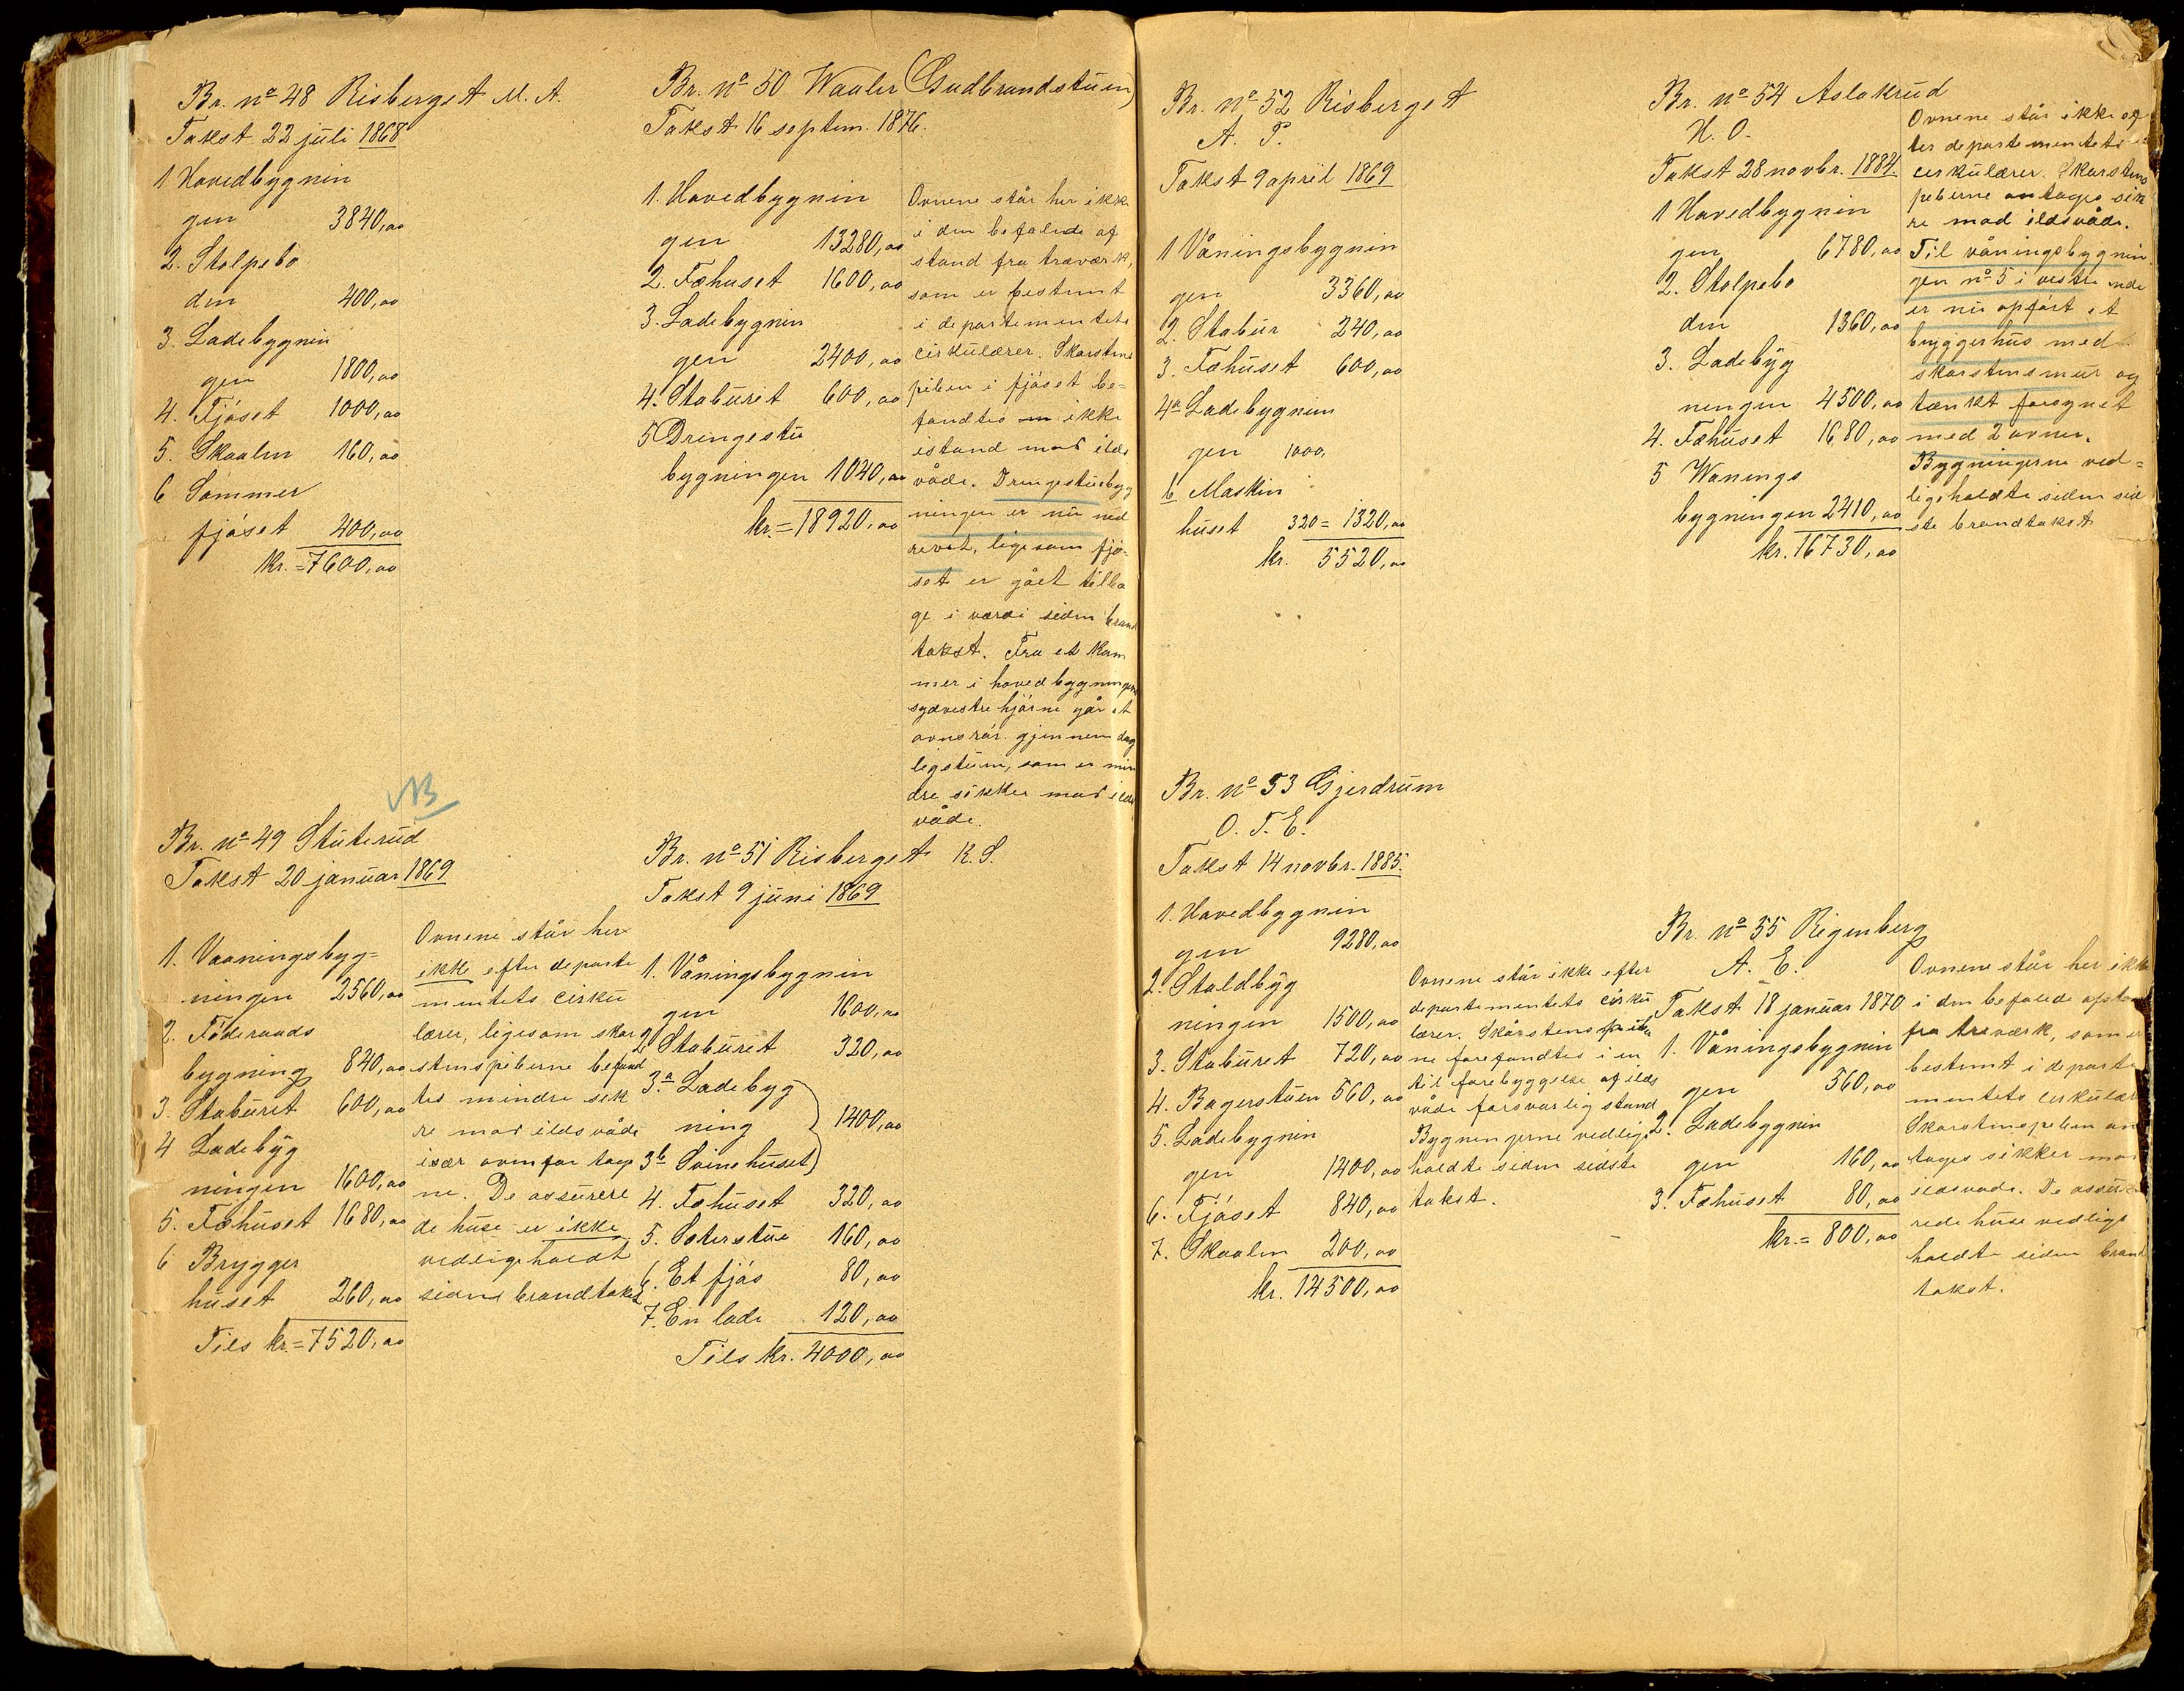 Br. nº 48 Risberget M. A.
Takst 22 juli 1868
1 Hovedbygnin
gen 3840,00
2. Stolpebo
den 400,00
3. Ladebygnin
gen 1800,00
4. Fjøset 1000,00
5. Skaalen 160,00
6 Sommer
fjøset 400,00
kr. = 7600,00
NB
Br. nº 49 Stuterud
Takst 20 januar 1869
1. Vaaningsbyg=
ningen 2560,00
2. Föderaads
bygning 840,00
3. Staburet 600,00
4 Ladebyg
ningen 1600,00
5. Fæhuset 1680,00
6 Brygger
huset 260,00
Tils kr. = 7520,00
Ovnene står her
ikke efter departe
mentets cirku
lærer, ligesom skor
stenspiberne befand
tes mindre sik
re mod ildsvåde
især ovenfor tage
ne. De assurere
de huse er ikke
vedligeholdt
siden brandtakst
Br. nº 50 Waaler (Gudbrandstuen)
Takst 16 septem. 1876.
1. Hovedbygnin
gen 13280,00
2. Fæhuset 1600,00
3. Ladebygnin
gen 2400,00
4. Staburet 600,00
5 Drengestu
bygningen 1040,00
kr. = 18920,00
Ovnene står her ikke
i den befalede af
stand fra træværk,
som er bestemt
i departementets
cirkulærer. Skorstens
piben i fjøset be=
fandtes ikke
istand mod ilds
våde. Drengestuebyg
ningen er nu ned
revet, ligesom fjø=
set er gået tilba
ge i værdi siden brand
takst. Fra et kam
mer i hovedbygningens
sydvestre hjørne går et
ovnsrør gjennem dag
ligstuen, som er min
dre sikker mod ilds
våde.
Br. nº 51 Risberget K. S.
Takst 9 juni 1869
1. Våningsbygnin
gen 1600,00
2 Staburet 320,00
3.a Ladebyg
ning
3b Svinehuset) 1400,00
4. Fæhuset 320,00
5. Sæterstue 160,00
6. Et fjøs 80,00
7. En lade 120,00
Tils kr. 4000,00
Br. nº 52 Risberget
A. P.
Takst 9 april 1869
1 Våningsbygnin
gen 3360,00
2. Stabur 240,00
3. Fæhuset 600,00
4a Ladebygnin
gen 1000,
b Maskin
huset 320 = 1320,00
kr. 5520,00
Br. nº 53 Gjerdrum
O. T. E.
Takst 14 novbr. 1885.
1. Hovedbygnin
gen 9280,00
2. Staldbyg
ningen 1500,00
3. Staburet 720,00
4. Bagerstuen 560,00
5. Ladebygnin
gen 1400,00
6. Fjøset 840,00
7. Skaalen 200,00
kr. 14500,00
Ovnene står ikke efter
departementets cirku
lærer. Skorstenspiber
ne forefandtes i en
til forebyggelse af ilds
våde forsvarlig stand
Bygningerne vedlige
holdte siden sidste
takst.
Br. nº 54 Aslakrud
H. O.
Takst 28 novbr. 1884.
1 Hovedbygnin
gen 6780,00
2. Stolpebo
den 1360,00
3. Ladebyg
ningen 4500,00
4. Fæhuset 1680,00
5 Wanings
bygningen 2410,00
kr. 16730,00
Ovnene står ikke ef
ter departementets
cirkulærer. Skorstens
peberne antages sik
re mod ildsvåde.
Til våningsbygnin
gen nº 5 i vestre ende
er nu opført et
bryggerhus med
skorstensmur og
tænkt forsynet
med 2 ovner.
Bygningerne ved=
ligeholdte siden sid
ste brandtakst
Br. nº 55 Rigenberg
A. E.
Takst 18 januar 1870
1. Våningsbygnin
gen 560,00
2. Ladebygnin
gen 160,00
3. Fæhuset 80,00
kr. = 800,00
Ovnene står her ikke
i den befalede afstand
fra træværk, som er
bestemt i departe
mentets cirkulær
Skorstenspeben an
tages sikker mod
ildsvåde. De assu=
rede huse vedlige
holdte siden brand
takst.